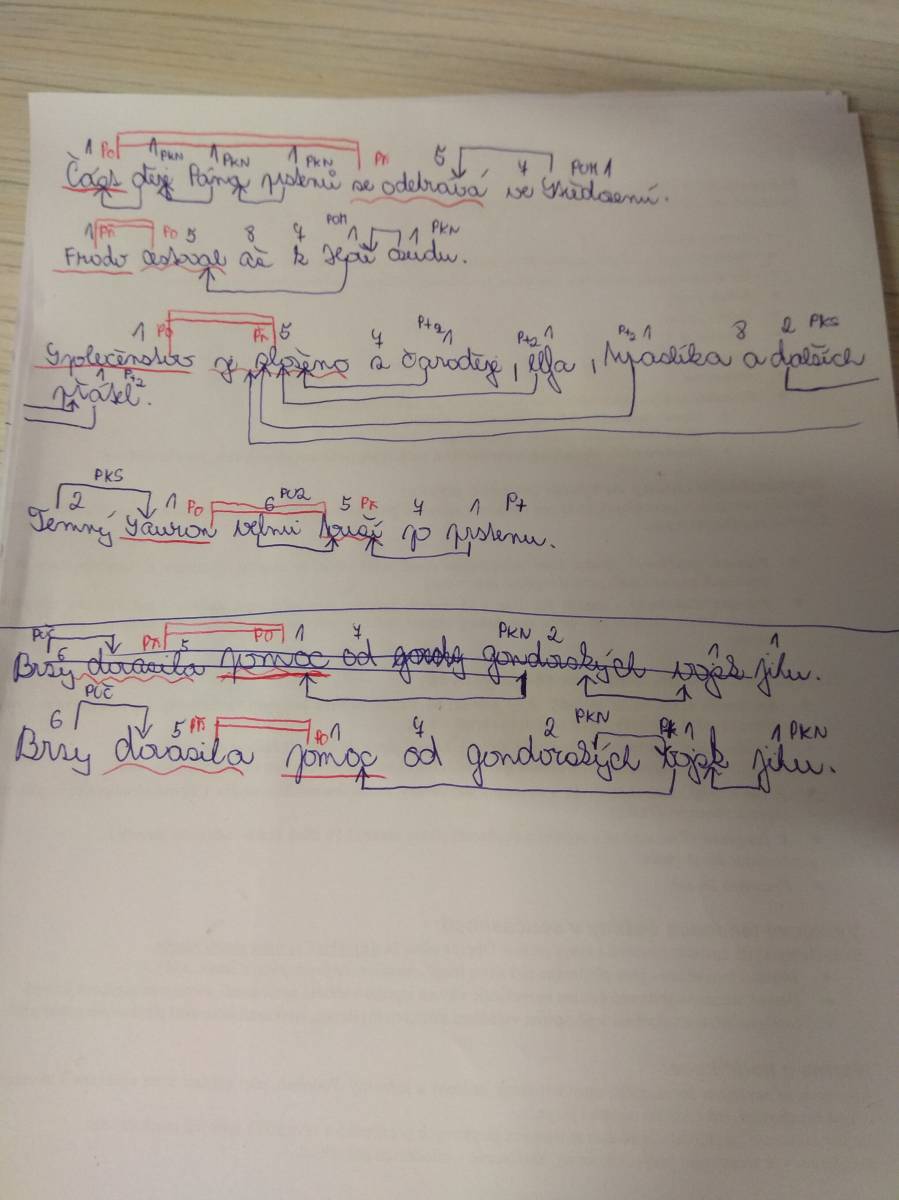 1 Po 1 PKN 1 PKN 1 PKN Př 5 7 PUM 1
Část děje Pána prstenů se odehrává ve Středozemi.
1 Př Po 5 8 7 PUM 1 1 PKN
Frodo cestoval až k Hoře osudu.
1 Po Př 5 7 Pt2 1 Pt2 1 Pt2 1 8 2 PKS
Společenstvo je složeno z čaroděje, elfa, trpaslíka a dalších
1 Pt2
přátel.
PKS
2 1 Po 6 PU2 5 Př 7 1 Pt
Temný Sauron velmi touží po prstenu.
PUČ Př Po 1 7 PKN 2
6 5 1 1
Brzy dorazila pomoc od gondorských vojsk jihu.
6 PUČ 5 Př Po 1 7 2 PKN 1 1 PKN
Brzy dorazila pomoc od gondorských vojsk jihu.